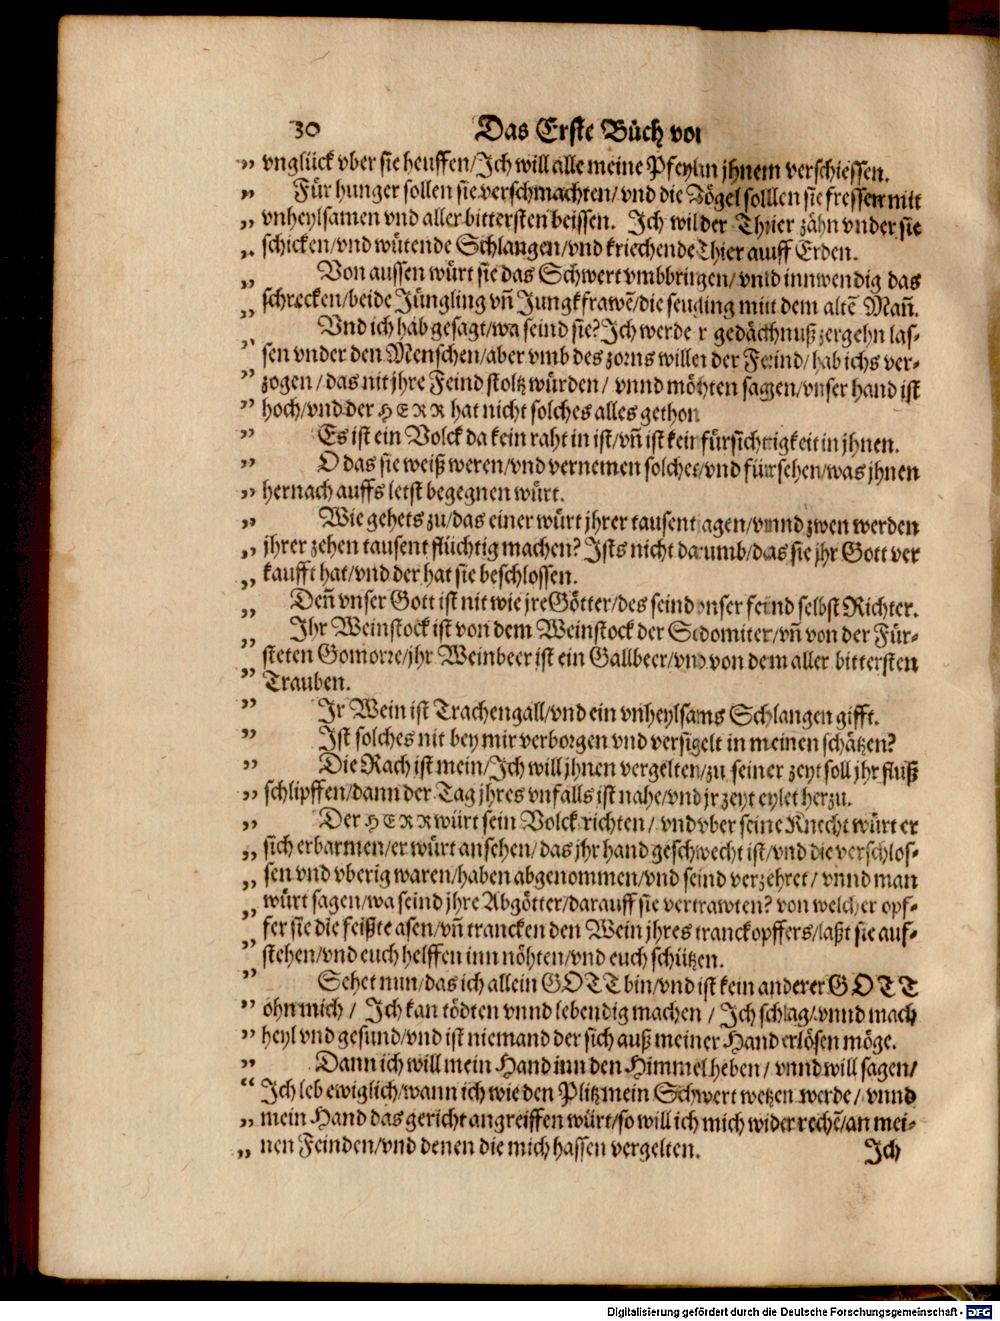 30 Das Erste Buch von
„ vnglück vber sie heuffen/Ich will alle meine Pfeyl in jhnem verschiessen.
„ Für hunger sollen sie verschmachten/vnd die Vögel solllen sie fressen mit
„ vnheylsamen vnd aller bittersten beissen. Ich wil der Thier zähn vnder sie
„ schicken/vnd wütende Schlangen/vnd kriechende Thier auff Erden.
„ Von aussen würt sie das Schwert vmbbringen/ vnd innwendig das
„ schrecken/beide Jüngling vñ Jungkfrawẽ/die seugling mit dem altẽ Mañ.
„ Vnd ich hab gesagt/wa seind sie? Ich werde gedächnuß zergehn las-
„ sen vnder den Menschen/aber vmb des zorns willen der Feind/ hab ichs ver-
„ zogen / das nit jhre Feind stoltz würden/ vnnd möhten sagen/vnser hand ist
„ hoch/vnd der HERR hat nicht solches alles gethon
„ Es ist ein Volck da kein raht in ist/vñ ist kein fürsichtigkeit in jhnen.
„ O das sie weiß weren/vnd vernemen solches/vnd fürsehen/was jhnen
„ hernach auffs letst begegnen würt.
„ Wie gehets zu/das einer würt jhrer tausent jagen/vnnd zwen werden
„ jhrer zehen tausent flüchtig machen? Ists nicht darumb/das sie jhr Gott ver
„ kaufft hat/vnd der hat sie beschlossen.
„ Deñ vnser Gott ist nit wie jre Götter/des seind vnser feind selbst Richter.
„ Ihr Weinstock ist von dem Weinstock der Sodomiter/vñ von der Für-
„ steten Gomorre/jhr Weinbeer ist ein Gallbeer/vnd von dem aller bittersten
„ Trauben.
„ Ir Wein ist Trachengall/vnd ein vnheylsams Schlangen gifft.
„ Ist solches nit bey mir verborgen vnd versigelt in meinen schätzen?
„ Die Rach ist mein/Ich will jhnen vergelten/zu seiner zeyt soll jhr fluß
„ schlipffen/dann der Tag jhres vnfalls ist nahe/vnd jr zeyt eylet herzu.
„ Der HERR würt sein Volck richten/ vnd vber seine Knecht würt er
„ sich erbarmen/er würt ansehen/das jhr hand geschwecht ist/vnd die verschlos-
„ sen vnd vberig waren/haben abgenommen/vnd seind verzehret/ vnnd man
„ würt sagen/wa seind jhre Abgötter/darauff sie vertrawten? von welcher opf-
„ fer sie die feißte asen/vñ trancken den Wein jhres tranckopffers/laßt sie auf-
„ stehen/vnd euch helffen inn nöhten/vnd euch schützen.
„ Sehet nun/das ich allein GOTT bin/vnd ist kein anderer GOTT
„ ohn mich / Ich kan tödten vnnd lebendig machen / Ich schlag/vnnd mach
„ heyl vnd gesund/vnd ist niemand der sich auß meiner Hand erlösen möge.
„ Dann ich will mein Hand inn den Himmel heben/ vnnd will sagen/
“ Ich leb ewiglich/wann ich wie den Plitz mein Schwert wetzen werde/ vnnd
„ mein Hand das gericht angreiffen würt/so will ich mich wider rechẽ/an mei-
„ nen Feinden/vnd denen die mich hassen vergelten.
Ich
Digitalisierung gefördert durch die Deutsche Forschungsgemeinschaft - DFG